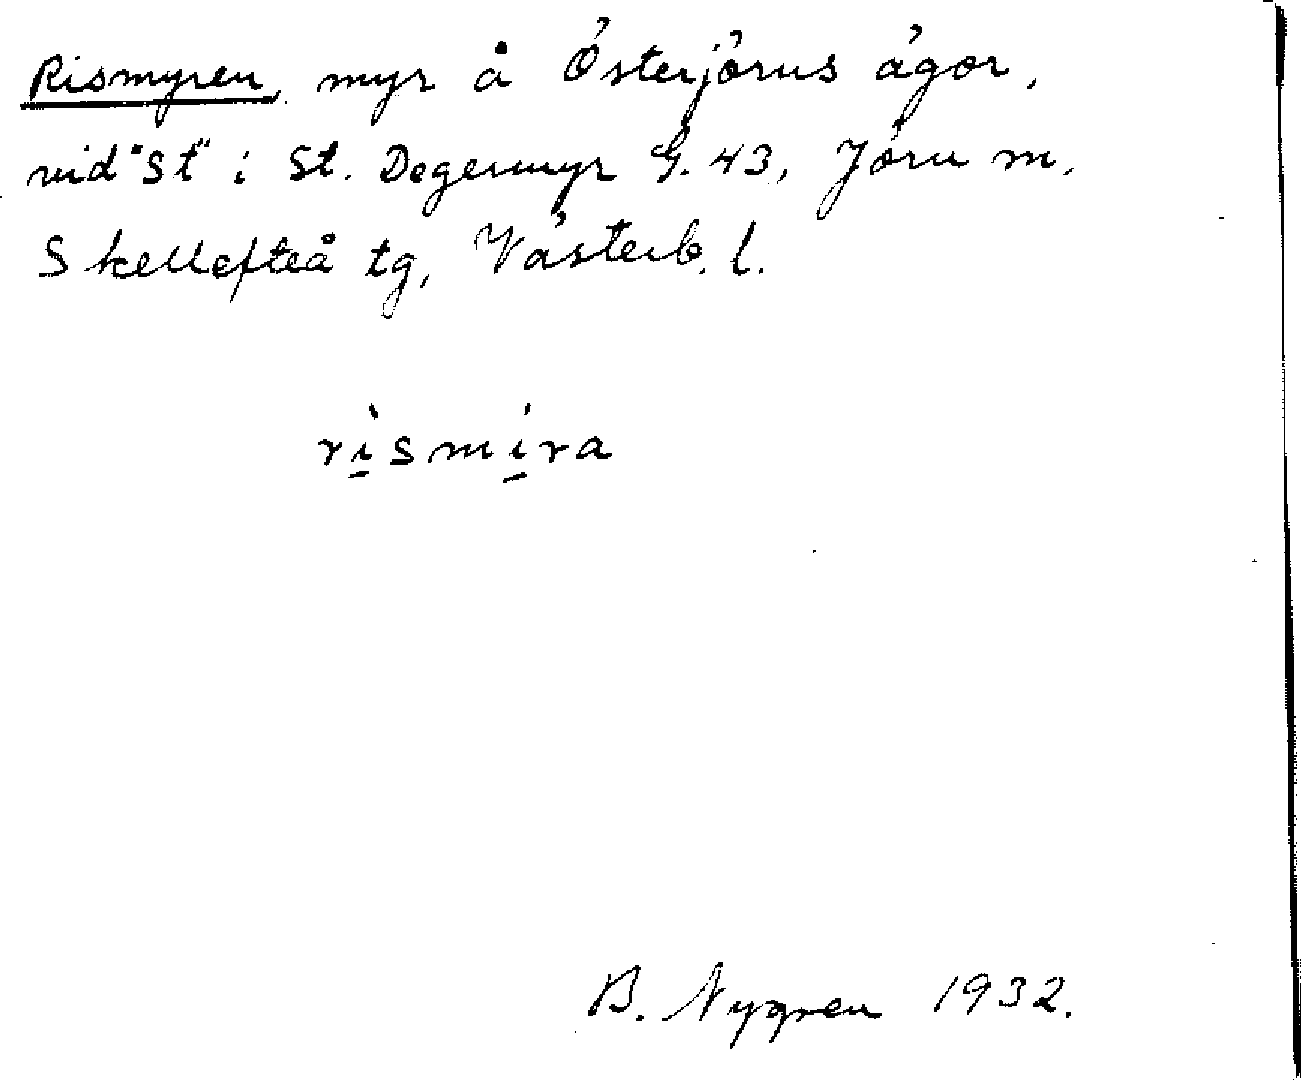 Rismyren, myr å Österjörns ägor,
vid "St" i St. Degermyr G. 43, Jörn m.
Skellefteå tg, Västerb. l.
rìsmíra
B. Nygren 1932.